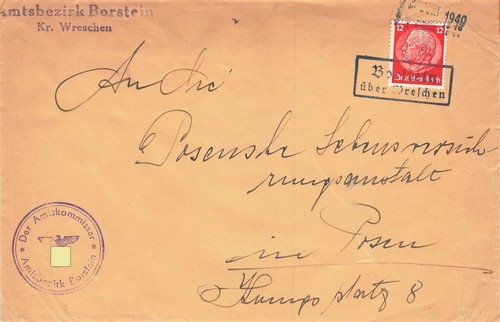 Amtsbezirk Borstein
Kr. Wreschen
1940
12 12
Deutsches Reich
über Wreschen
An die
Posensche Lebensversich
rungsanstalt
in Posen
platz 8
Der Amtskommissar
Amtsbezirk Borstein